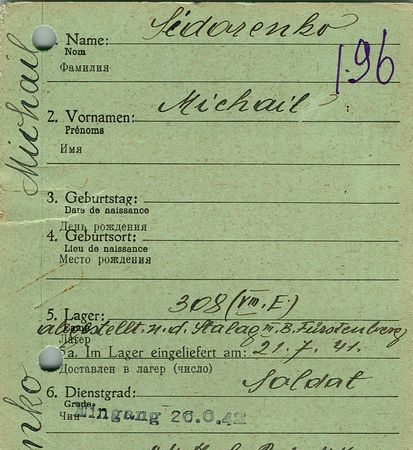 1. Name: Sidorenko
Nom
Фамилия
196
2. Vornamen: Michail
Prénoms
Имя
3. Geburtstag:
Date de naissance
День рождения
4. Geburtsort:
Lieu de naissance
Место рождения
5. Lager: 308 (VIII. E.)
abgestellt. n. d. Stalag III. B. Fürstenberg
Лагерь
5a. Im Lager eingeliefert am: 21. 7. 41.
Доставлен в лагерь (число)
6. Dienstgrad: Soldat
Grade
Чин
Eingang 26.6.42
Michail
nko